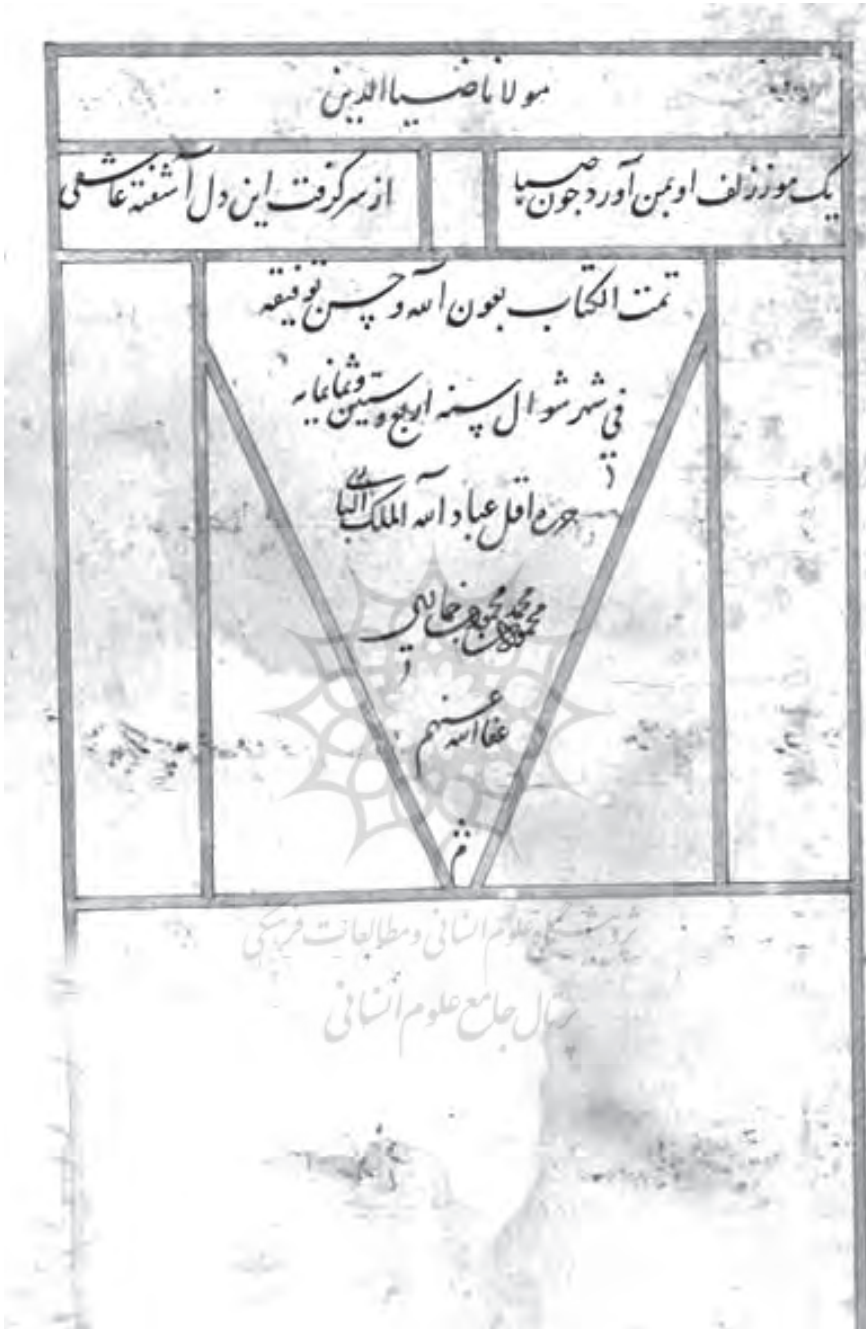 مولانا ضیاالدین
یک مو ز زلف او بمن آورد چون صبا
از سر گرفت این دل آشفته عاشقی
تمت الکتاب بعون الله و حسن توفیقه
فی شهر شوال سنه اربع و ستین و ثمانمایه
حرره اقل عباد الله الملک الباری
محمود بن محمد بن محمود
عفا الله عنهم
م
پژوهشگاه علوم انسانی و مطالعات فرهنگی
پرتال جامع علوم انسانی